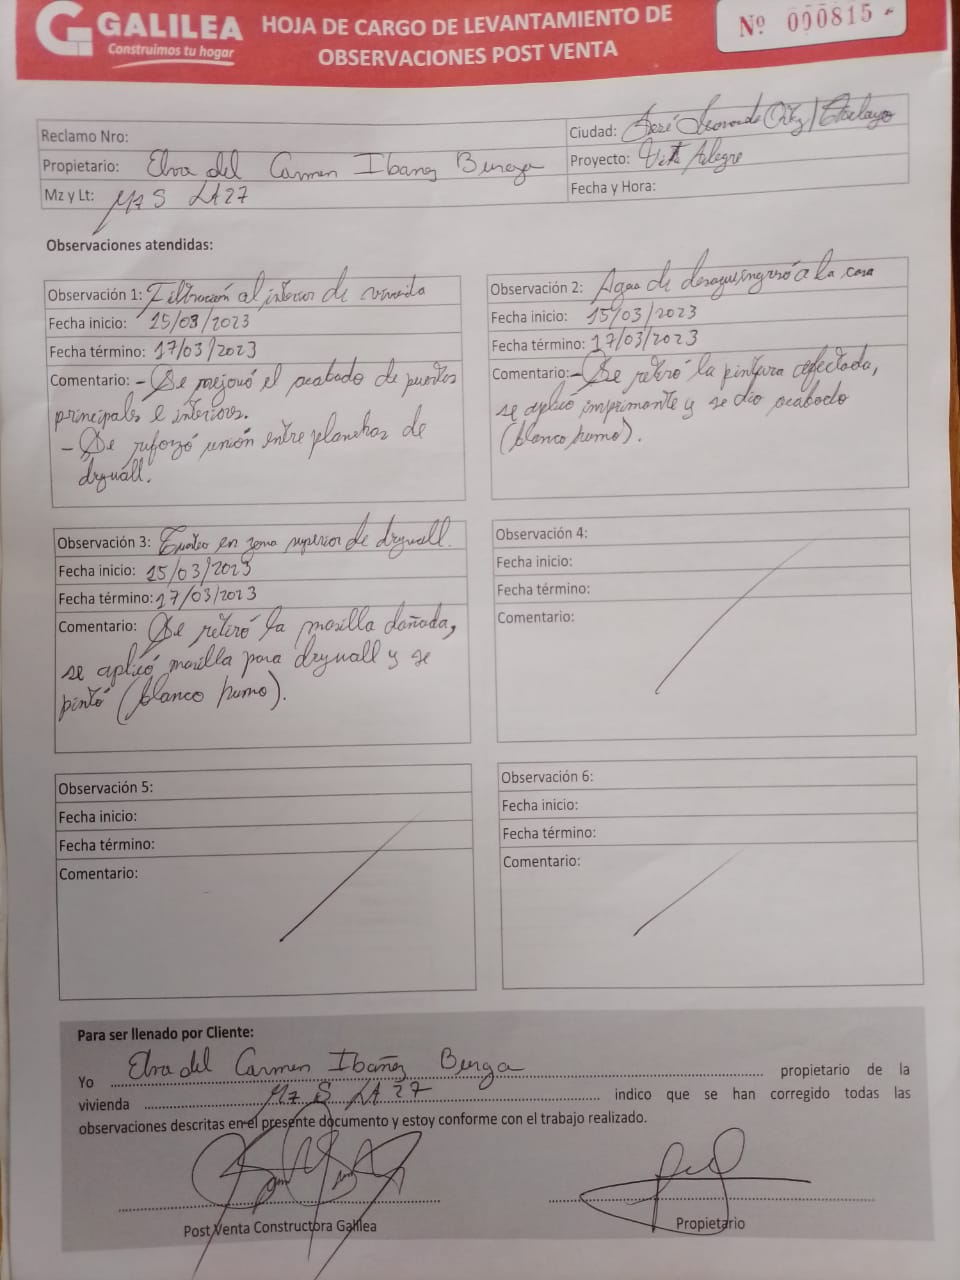 GALILEA
Construimos tu hogar
HOJA DE CARGO DE LEVANTAMIENTO DE
OBSERVACIONES POST VENTA
Nº 000815
Reclamo Nro:
Ciudad: José Leonardo Ortiz / Chiclayo
Propietario: Elva del Carmen Ibañez Burga
Proyecto: Vista Alegre
Mz y Lt: Mz S Lt 27
Fecha y Hora:
Observaciones atendidas:
Observación 1: Filtración al interior de vivienda
Fecha inicio: 15/03/2023
Fecha término: 17/03/2023
Comentario: - Se mejoró el acabado de puertas
principales e interiores.
- Se reforzó unión entre planchas de
drywall.
Observación 2: Agua de desague ingresó a la casa
Fecha inicio: 15/03/2023
Fecha término: 17/03/2023
Comentario: - Se retiró la pintura afectada,
se aplicó imprimante y se dio acabado
(blanco humo).
Observación 3: en zona superior de drywall.
Fecha inicio: 15/03/2023
Fecha término: 17/03/2023
Comentario: Se retiró la masilla dañada,
se aplicó masilla para drywall y se
pintó (blanco humo).
Observación 4:
Fecha inicio:
Fecha término:
Comentario:
Observación 5:
Fecha inicio:
Fecha término:
Comentario:
Observación 6:
Fecha inicio:
Fecha término:
Comentario:
Para ser llenado por Cliente:
Yo Elva del Carmen Ibañez Burga propietario de la
vivienda Mz S Lt 27 indico que se han corregido todas las
observaciones descritas en el presente documento y estoy conforme con el trabajo realizado.
Post Venta Constructora Galilea
Propietario